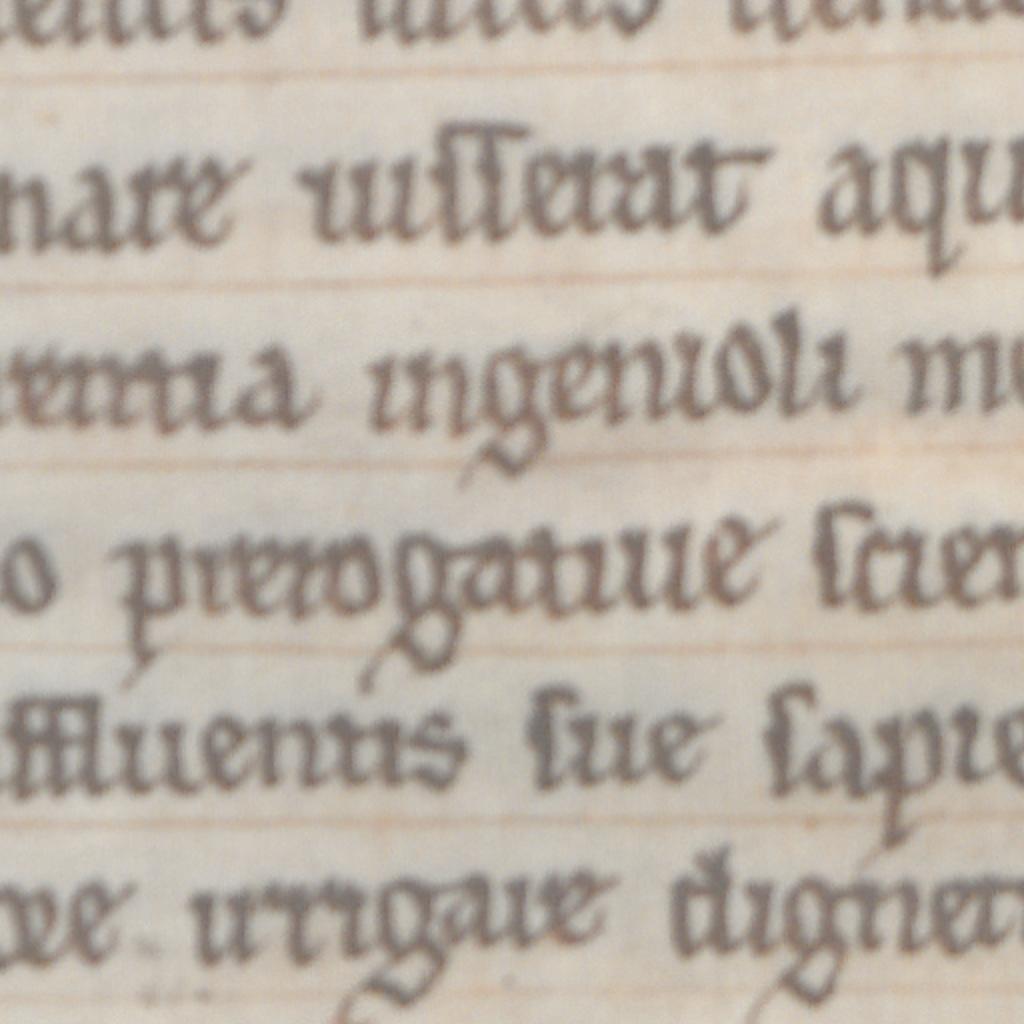 nare iusserat aqu
entia ingenioli me
o prerogatiue scien
ffluentis sue sapie
irrigare digner